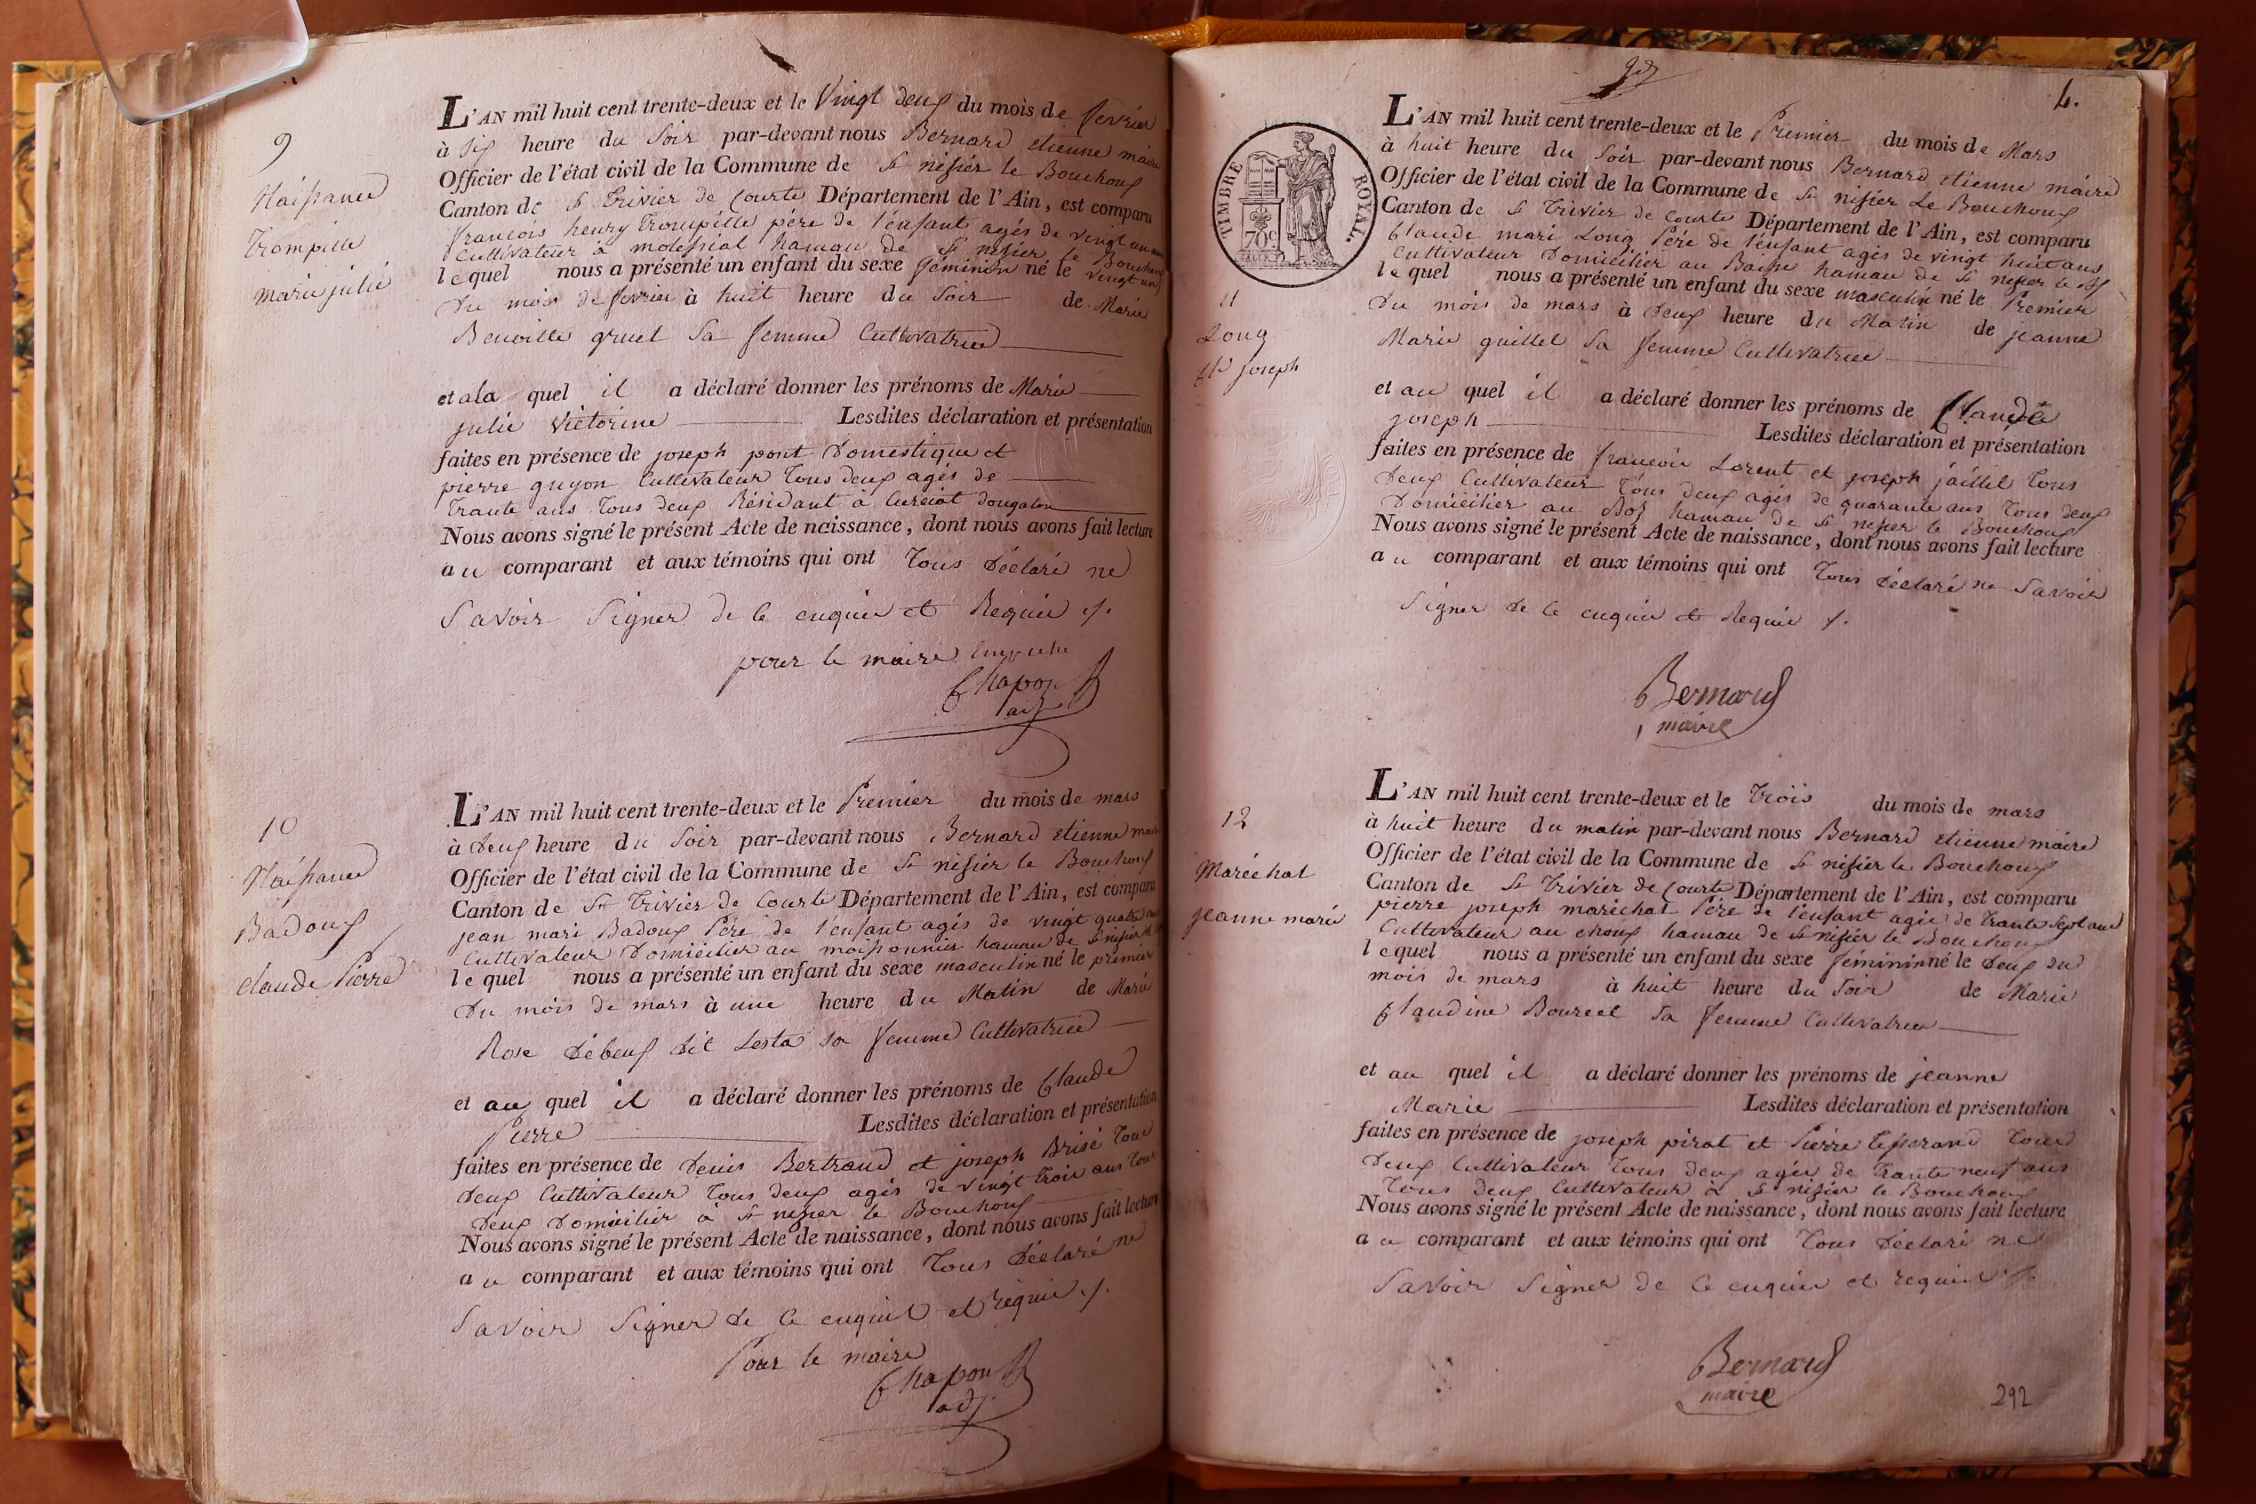 9
Naissance
Trompille
marie julie
L'AN mil huit cent trente-deux et le Vingt deux du mois de fevrier
à six heure du Soir par-devant nous Bernard etienne maire
Officier de l'état civil de la Commune de St nisier le Bouchoux
Canton de St Trivier de Courte Département de l'Ain, est comparu
francois henry Trompille père de l'enfant agés de vingt un ans
Cultivateur à molessiat hamau de St nisier le Bouchoux
lequel nous a présenté un enfant du sexe féminin né le vingt un
Du mois de fevrier à huit heure du Soir de Marie
Benoitte gruel Sa femme Cultivatrice
et a la quel il a déclaré donner les prénoms de Marie
julie Victorine Lesdites déclaration et présentation
faites en présence de joseph pont Domestique et
pierre guyon Cultivateur Tous deux agés de
Trante ans Tous deux Résidant à Curciat dongalon
Nous avons signé le présent Acte de naissance, dont nous avons fait lecture
au comparant et aux témoins qui ont Tous Déclaré ne
Savoir Signer de ce enquir et Requir ./.
pour le maire
Chapon
adj
10
Naissance
Badoux
claude Pierre
L'AN mil huit cent trente-deux et le Premier du mois de mars
à Deux heure du Soir par-devant nous Bernard etienne maire
Officier de l'état civil de la Commune de St nisier le Bouchoux
Canton de St Trivier de Courte Département de l'Ain, est comparu
jean mari Badoux Père de l'enfant agés de vingt quatre ans
Cultivateur Domicilier au moissonnier hamau de St nisier
lequel nous a présenté un enfant du sexe masculin né le premier
Du mois de mars à une heure du Matin de Marie
Rose Débeuf dit Lesta sa femme Cultivatrice
et au quel il a déclaré donner les prénoms de Claude
Pierre Lesdites déclaration et présentation
faites en présence de Denis Bertrand et joseph Brisé Tous
deux Cultivateur Tous deux agés de vingt trois ans Tous
Deux Domicilier à St nisier le Bouchoux
Nous avons signé le présent Acte de naissance, dont nous avons fait lecture
au comparant et aux témoins qui ont Tous Déclaré ne
Savoir Signer de Ce enquit et requir ./.
Pour le maire
Chapon
adj
4.
TIMBRE ROYAL.
70c
11
Long
Cde joseph
L'AN mil huit cent trente-deux et le Premier du mois de Mars
à huit heure du Soir par-devant nous Bernard etienne maire
Officier de l'état civil de la Commune de St nisier Le Bouchoux
Canton de St Trivier de Courte Département de l'Ain, est comparu
Claude mari Long Père de l'enfant agés de vingt huit ans
Cultivateur Domicilier au Baisse hamau de St nisier le
lequel nous a présenté un enfant du sexe masculin né le Premier
Du mois de mars à Deux heure du Matin de jeanne
Marie guillet Sa femme Cultivatrice
et au quel il a déclaré donner les prénoms de Claude
joseph Lesdites déclaration et présentation
faites en présence de francois Lorent et joseph jaillet Tous
Deux Cultivateur Tous deux agés de quarante ans Tous deux
Domicilier au Boz hamau de St nisier le Bouchoux
Nous avons signé le présent Acte de naissance, dont nous avons fait lecture
au comparant et aux témoins qui ont Tous Déclaré ne Savoir
Signer de Ce enquir et Requir ./.
Bernard
maire
12
Maréchal
jeanne marie
L'AN mil huit cent trente-deux et le Trois du mois de mars
à huit heure du matin par-devant nous Bernard etienne maire
Officier de l'état civil de la Commune de St nisier le Bouchoux
Canton de St Trivier de Courte Département de l'Ain, est comparu
pierre joseph maréchal Père de l'enfant agés de Trante Sept ans
Cultivateur au choux hamau de St nisier le Bouchoux
lequel nous a présenté un enfant du sexe féminin né le Deux du
mois de mars à huit heure du Soir de Marie
Claudine Bourcel Sa femme Cultivatrice
et au quel il a déclaré donner les prénoms de jeanne
Marie Lesdites déclaration et présentation
faites en présence de joseph pirat et Pierre Tisserand Tous
Deux Cultivateur Tous deux agés de Trante neuf ans
Tous deux Cultivateur à St nisier le Bouchoux
Nous avons signé le présent Acte de naissance, dont nous avons fait lecture
au comparant et aux témoins qui ont Tous Déclaré ne
Savoir Signer de Ce enquir et requir ./.
Bernard
maire
292